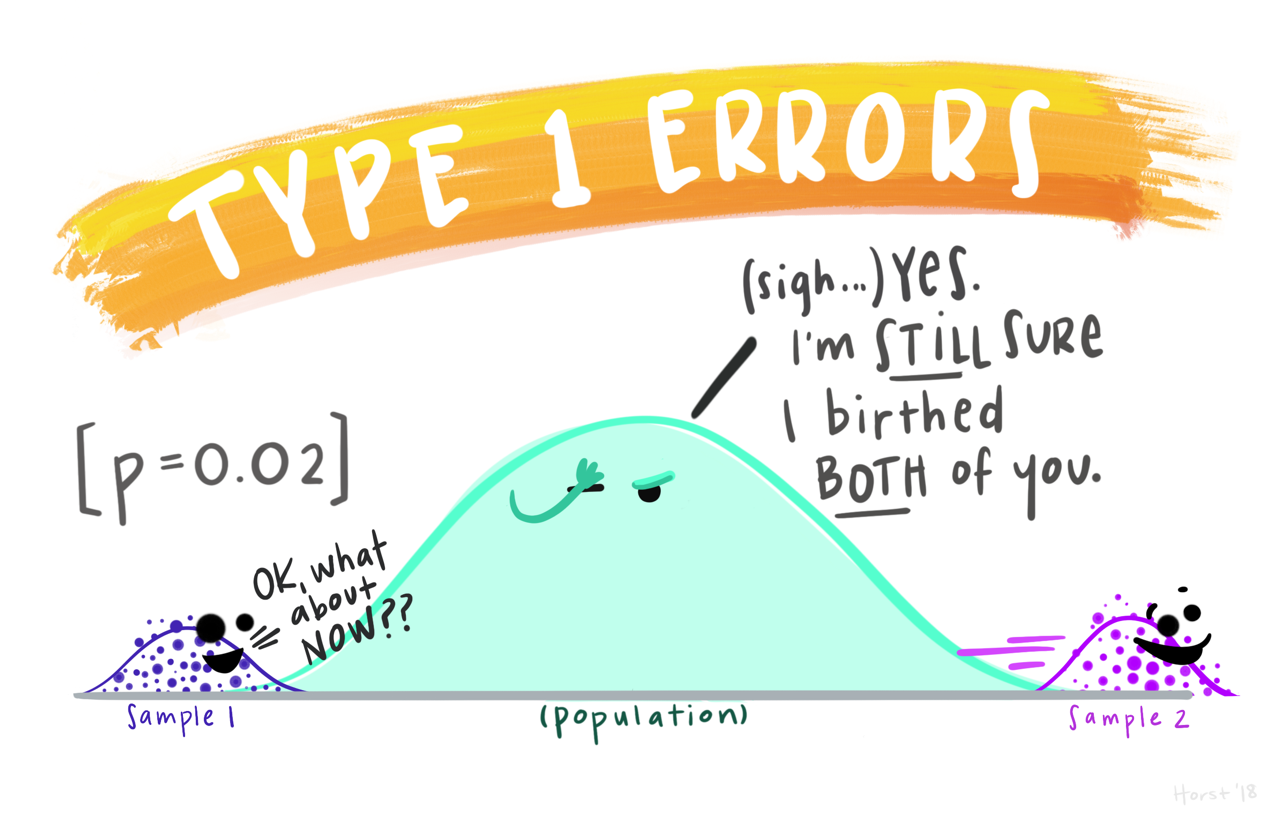 TYPE 1 ERRORS
(sigh...) Yes.
I'm STILL SURE
I birthed
BOTH of you.
[p = 0.02]
OK, what
about
NOW??
Sample 1
(population)
Sample 2
Horst '18